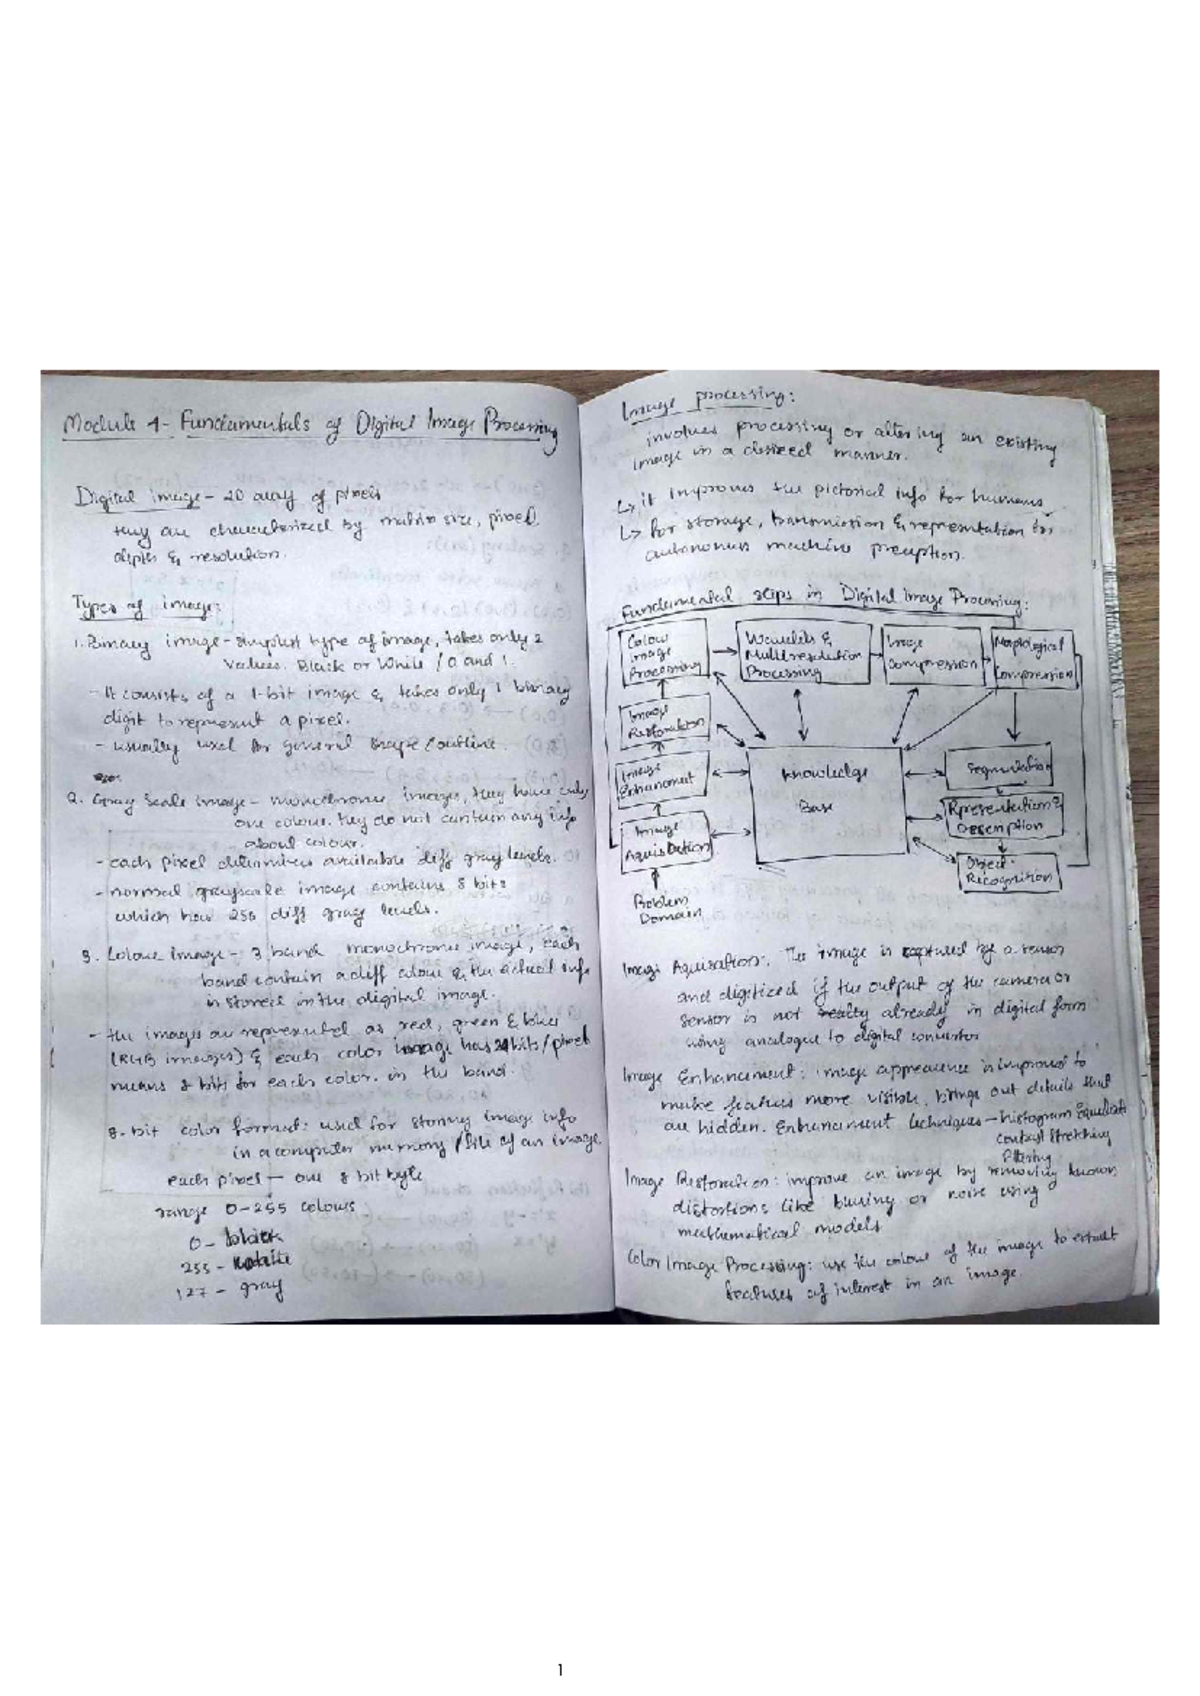 Module 4 - Fundamentals of Digital Image Processing
Digital image - 2D array of pixels
they are characterized by matrix size, pixel
depth & resolution.
Types of image:
1. Binary image - simplest type of image, takes only 2
values. Black or White / 0 and 1.
- It consists of a 1-bit image & takes only 1 binary
digit to represent a pixel.
- usually used for general shape/outline.
2. Gray Scale image - monochrome images, they have only
one colour. they do not contain any info
about colour.
- each pixel determines available diff gray levels.
- normal grayscale image contains 8 bits
which has 256 diff gray levels.
3. Colour image - 3 band monochrome image, each
band contain a diff colour & the actual info
is stored in the digital image.
- the images are represented as red, green & blue
(RGB images) & each color image has 24 bits/pixel
means 8 bits for each color. in the band.
8-bit color format: used for storing image info
in a computer memory / file of an image.
each pixel - one 8 bit byte
range 0-255 colours
0 - black
255 - white
127 - gray
Image processing:
involves processing or altering an existing
image in a desired manner.
↳ it improves the pictorial info for humans
↳ for storage, transmission & representation for
autonomus machine preception.
Fundamental steps in Digital Image Processing:
Colour
Image
Processing
Wavelets &
Multiresolution
Processing
Image
Compression
Morplogical
Compression
Image
Restoration
Image
Enhancment
Image
Aquisition
Problem
Domain
Knowledge
Base
Segmentation
Rpresentation &
Description
Object
Recognition
Image Aquisation: The image is captured by a sensor
and digitized if the output of the camera or
sensor is not already in digital form
using analogue to digital convertor
Image Enhancement: image apprearence is improved to
make features more visible. brings out details that
are hidden. Enhancement techniques - histogram Equalizat
contrast stretching
filtering
Image Restoration: improve an image by removing known
distortions like blurring or noise using
mathematical models
Color Image Processing: use the colour of the image to extract
features of interest in an image.
1